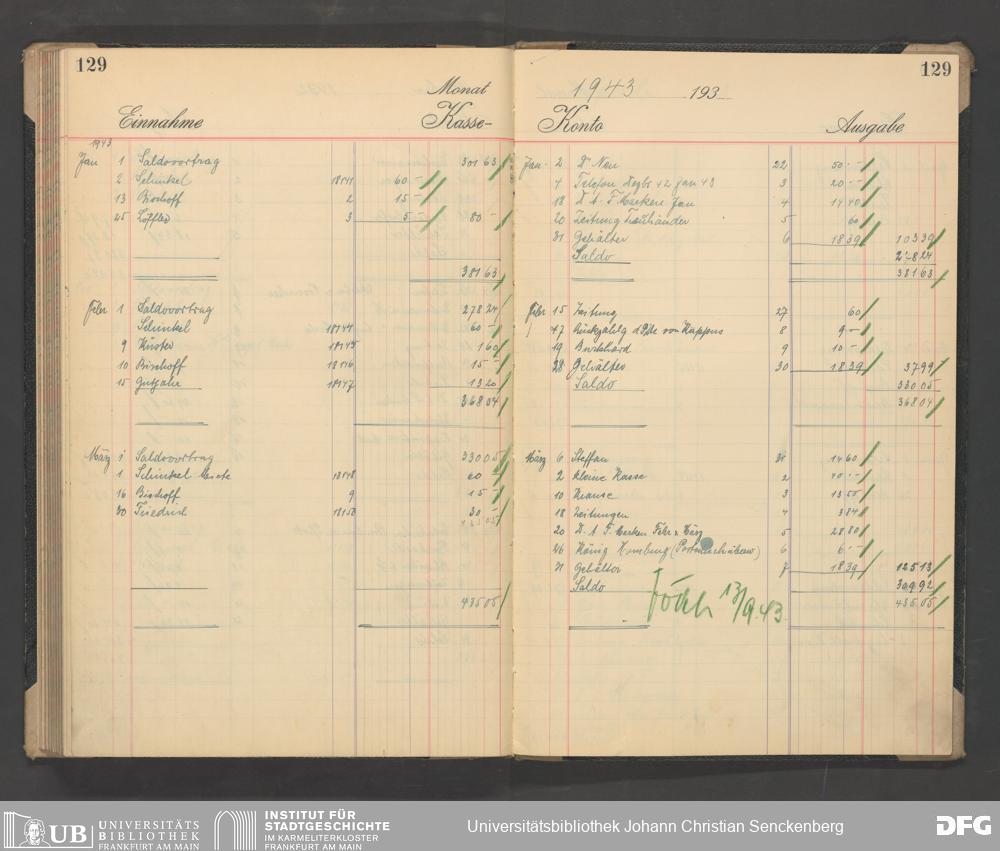 129
Monat
Einnahme Kasse-
1943
Jan 1 Saldovortrag 301 63
2 Schinkel 18141 60 -
13 Bischoff 2 15 -
25 Löffler 3 5 - 80 -
381 63
Febr 1 Saldovortrag 278 24
Schinkel 18144 60 -
9 Küster 18145 1 60
10 Bischoff 18146 15 -
15 Gutjahr 18147 13 20
368 04
März 1 Saldovortrag 330 05
1 Schinkel 18148 60 -
16 Bischoff 9 15 -
30 Friedrich 18150 30 -
435 05
435 05
129
1943 193
Konto Ausgabe
Jan. 2 Dr Neu 22 50 -
4 Telefon Dezbr 42 Jan 43 3 20 -
18 D.A.F. Marken Jan 4 14 40
20 Zeitung Treuhänder 5 60
31 Gehälter 6 18 39 103 39
Saldo 278 24
381 63
Febr 15 Zeitung 27 60
17 8 9 -
19 Burkhard 9 10 -
28 Gehälter 30 18 39 37 99
Saldo 330 05
368 04
März 6 Steffan 31 14 60
2 Kleine Kasse 2 40 -
10 Krause 3 13 50
18 Zeitungen 4 3 84
20 D.A.F. Marken Febr u März 5 28 80
26 König Homburg 6 6 -
31 Gehälter 7 18 39 125 13
Saldo 309 92
435 05
13/9.43
UB UNIVERSITÄTS
BIBLIOTHEK
FRANKFURT AM MAIN
INSTITUT FÜR
STADTGESCHICHTE
IM KARMELITERKLOSTER
FRANKFURT AM MAIN
Universitätsbibliothek Johann Christian Senckenberg
DFG